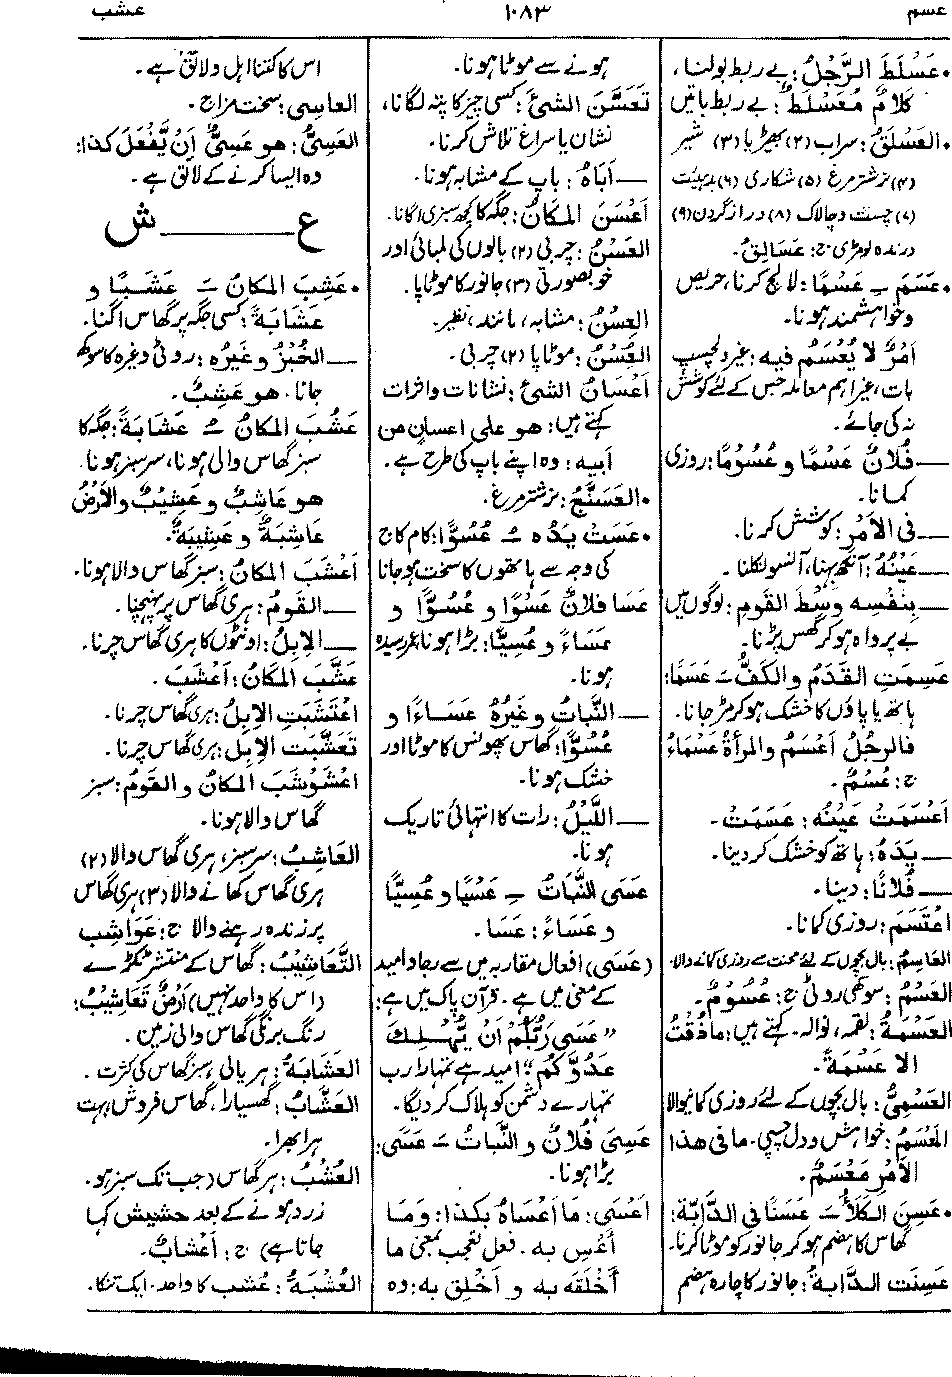 عسم
١٠٨٣
عشب
• عَسْلَطَ الرَّجُلُ: بے ربط بولنا،
كَلَامٌ مُعَسْلَطٌ: بے ربط باتیں
• العَسْلَقُ: سراب (۲) بھیڑیا (۳) شیر
(۴) نر شتر مرغ (۵) شکاری (۶) بدہیئت
(۷) چست و چالاک (۸) دراز گردن (۹)
درندہ لومڑی. ج: عَسَالِقُ.
• عَسَمَ ــِ عَسْمًا: لالچ کرنا، حریص
و خواہشمند ہونا.
اَمْرٌ لا يُعْسَمُ فيه: غیر دلچسپ
بات، غیر اہم معاملہ جس کے لئے کوشش
نہ کی جائے.
ــ فُلانٌ عَسْمًا و عُسُوْمًا: روزی
کمانا.
ــ فی الاَمْرِ: کوشش کرنا.
ــ عَيْنُهُ: آنکھ بہنا، آنسو نکلنا.
ــ بِنَفْسِه وسْطَ القَومِ: لوگوں میں
بے پرواہ ہو کر گھس پڑنا.
عَسِمَتِ القَدَمُ والكَفُّ ــَ عَسَمًا:
ہاتھ یا پاؤں کا خشک ہو کر مڑ جانا.
فالرجلُ اَعْسَمُ والمرأةُ عَسْمَاءُ
ج: عُسْمٌ.
اَعْسَمَتْ عَيْنُه: عَسَمَتْ.
ــ يَدَهُ: ہاتھ کو خشک کر دینا.
ــ فُلانًا: دینا.
اعْتَسَمَ: روزی کمانا.
العَاسِمُ: بال بچوں کے لئے محنت سے روزی کمانے والا.
العَسْمُ: سوکھی روٹی ج: عُسُوْمٌ.
العَسْمَةُ: لقمہ، نوالہ. کہتے ہیں: ماذُقْتُ
الا عَسْمَةً.
العَسْمِیُّ: بال بچوں کے لئے روزی کمانیوالا
المَعْسَمُ: خواہش و دلچسپی. ما فی هذا
الاَمْرِ مَعْسَمٌ.
• عَسِنَ الكَلَأُ ــَ عَسَنًا فی الدَّابَّة:
گھاس کا ہضم ہو کر جانور کو موٹا کرنا.
عَسِنَت الدَّابةُ: جانور کا چارہ ہضم
ہونے سے موٹا ہونا.
تَعَسَّنَ الشئَ: کسی چیز کا پتہ لگانا،
نشان یا سراغ تلاش کرنا.
ــ اَبَاهُ: باپ کے مشابہ ہونا.
اَعْسَنَ المَكانُ: جگہ کا کچھ سبزی اگانا.
العَسْنُ: چربی (۲) بالوں کی لمبائی اور
خوبصورتی (۳) جانور کا موٹاپا.
العِسْنُ: مشابہ، مانند، نظیر.
العُسْنُ: موٹاپا (۲) چربی.
اَعْسَانُ الشئِ: نشانات و اثرات
کہتے ہیں: هو علی اعسانٍ من
اَبيه: وہ اپنے باپ کی طرح ہے.
• العَسَنَّجُ: نر شتر مرغ.
• عَسَتْ يَدُه ــُ عُسُوًّا: کام کاج
کی وجہ سے ہاتھوں کا سخت ہو جانا
عَسَا فلانٌ عَسْوًا و عُسُوًّا و
عَسَاءً و عُسِيًّا: بڑا ہونا، عمر رسیدہ
ہونا.
ــ النَّباتُ وغَيْرُهُ عَسَاءًا و
عُسُوًّا: گھاس پھونس کا موٹا اور
خشک ہونا.
ــ اللَّيْلُ: رات کا انتہائی تاریک
ہونا.
عَسَی النَّبَاتُ ــِ عَسْيًا و عُسِيًّا
و عَسَاءً: عَسَا.
(عَسَی) افعال مقاربہ میں سے رجاء امید
کے معنی میں ہے. قرآن پاک میں ہے:
"عَسَی رَبُّكُمْ اَنْ يُّهْلِكَ
عَدُوَّكُمْ" امید ہے تمہارا رب
تمہارے دشمن کو ہلاک کر دیگا.
عَسِیَ فُلَانٌ والنَّباتُ ــَ عَسًی:
بڑا ہونا.
اَعْسَی: مَا اَعْسَاهُ بكذا: وَمَا
اَعْسِ به. فعل تعجب بمعنی ما
اَخْلَقَه به و اَخْلِق به: وہ
اس کا کتنا اہل و لائق ہے.
العَاسِی: سخت مزاج.
العَسِیُّ: هو عَسِیٌّ اَنْ يَّفْعَلَ كذا:
وہ ایسا کرنے کے لائق ہے.
ع ــــــــ ش
• عَشِبَ المكانُ ــَ عَشَبًا و
عَشَابَةً: کسی جگہ پر گھاس اگنا.
ــ الخُبْزُ وغَيْرُه: روٹی وغیرہ کا سوکھ
جانا. هو عَشِبٌ.
عَشُبَ المكانُ ــُ عَشَابَةً: جگہ کا
سبز گھاس والی ہونا، سرسبز ہونا.
هو عَاشِبٌ و عَشِيْبٌ والاَرْضُ
عَاشِبَةٌ و عَشِيبَةٌ.
اَعْشَبَ المكانُ: سبز گھاس والا ہونا.
ــ القَومُ: ہری گھاس پر پہنچنا.
ــ الإبِلُ: اونٹوں کا ہری گھاس چرنا.
عَشَّبَ المكانُ: اَعْشَبَ.
اعْتَشَبَتِ الإبِلُ: ہری گھاس چرنا.
تَعَشَّبَت الإبِل: ہری گھاس چرنا.
اعْشَوْشَبَ المكانُ و القَومُ: سبز
گھاس والا ہونا.
العَاشِبُ: سرسبز، ہری گھاس والا (۲)
ہری گھاس کھانے والا (۳) ہری گھاس
پر زندہ رہنے والا ج: عَوَاشِب
التَّعَاشِيْبُ: گھاس کے منتشر ٹکڑے
(اس کا واحد نہیں) اَرْضٌ تَعَاشِيْبُ:
رنگ برنگی گھاس والی زمین.
العَشَابَةُ: ہریالی، سبز گھاس کی کثرت.
العَشَّابُ: گھسیارا، گھاس فروش، بہت
ہرا بھرا.
العُشْبُ: ہر گھاس (جب تک سبز ہو.
زرد ہونے کے بعد حشیش کہا
جاتا ہے) ج: اَعْشَابٌ.
العُشْبَةُ: عُشب کا واحد. ایک تنکا.